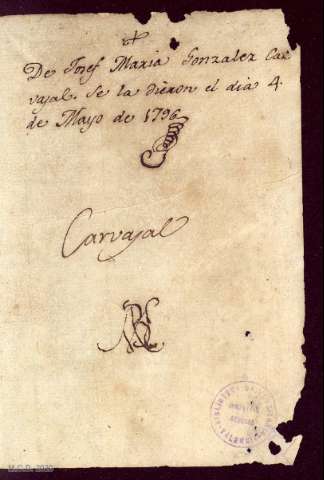 De Josef Maria Gonzalez Car
vajal. Se la dieron el dia 4.
de Mayo de 1796
Carvajal